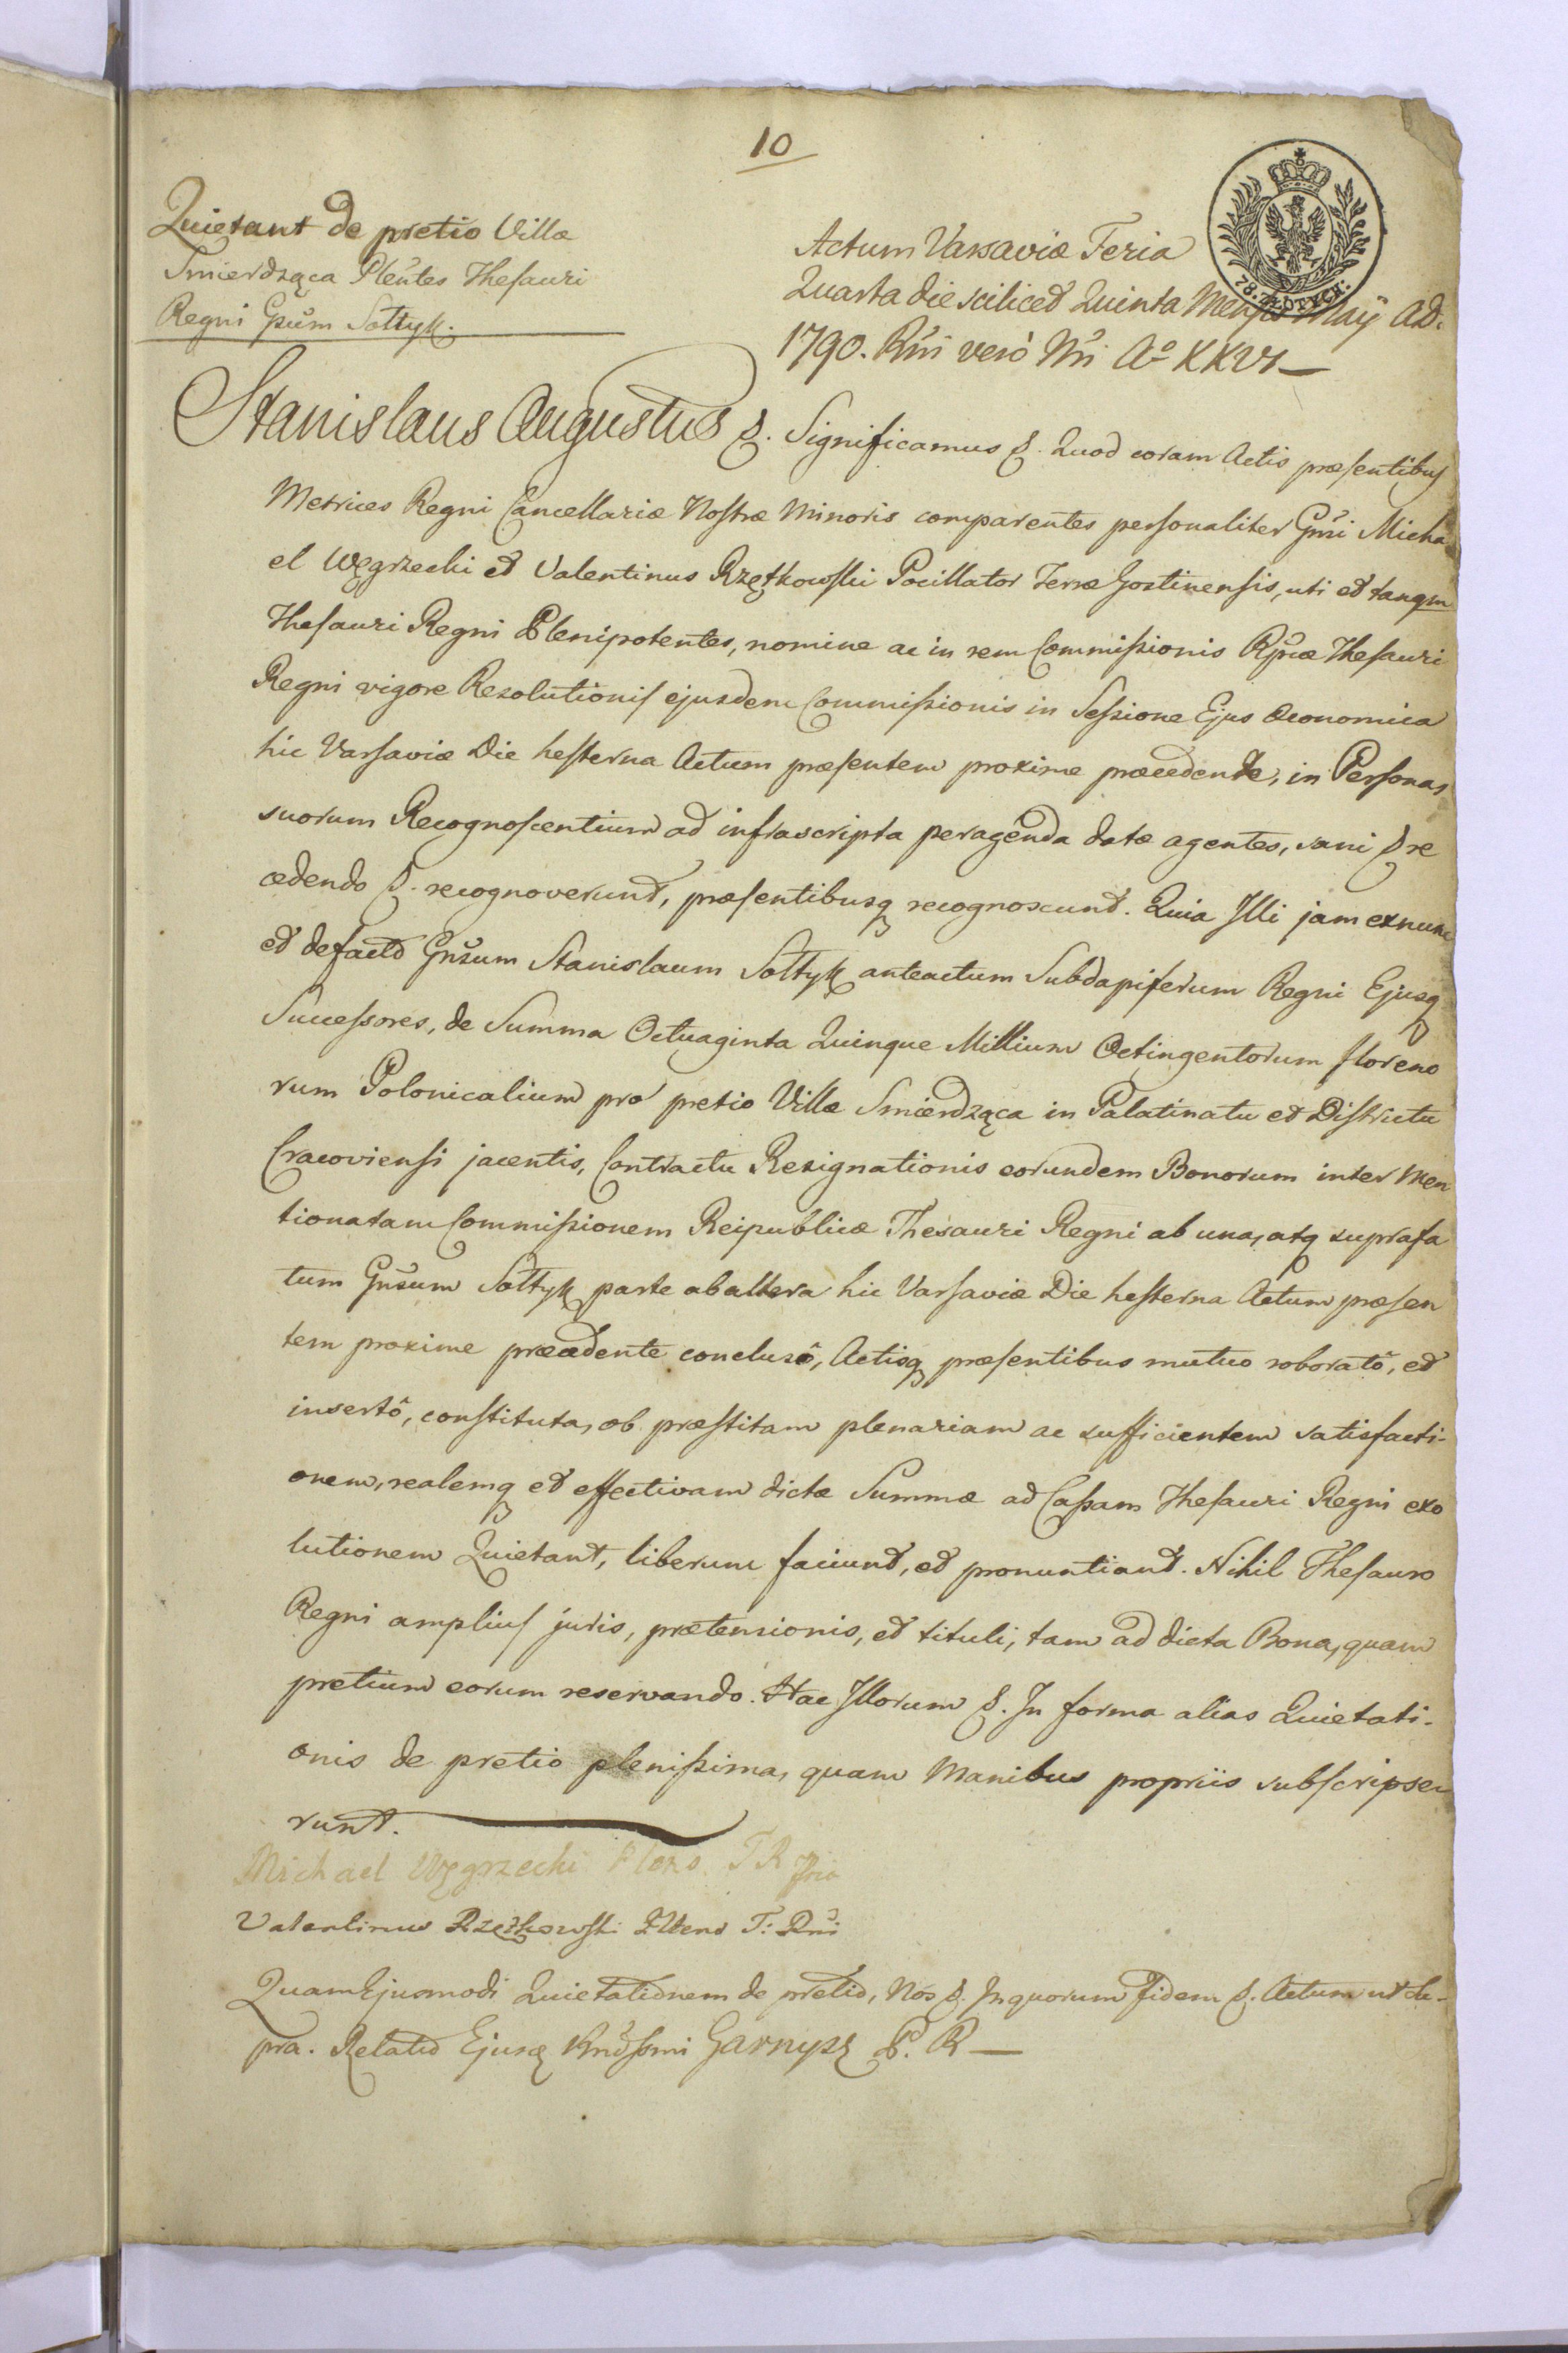 10
Quietant de pretio Villæ
Smierdząca Pleñtes Thesauri
Regni Gsũm Sołtyk.
Actum Varsaviæ Feria
Quarta die scilicet Quinta Mensis Maij AD.
1790. Rñi verò Ñri Aº XXVI
78. ZŁOTYCH.
Stanislaus Augustus &. Significamus &. Quod coram Actis præsentibus
Metrices Regni Cancellariæ Nostræ Minoris comparentes personaliter Gñsi Micha
el Węgrzecki et Valentinus Rzętkowski Pocillator Terræ Gostinensis, uti et tanqm
Thesauri Regni Plenipotentes, nomine ac in rem Commissionis Rpcæ Thesauri
Regni vigore Resolutionis ejusdem Commissionis in Sessione Ejus Oeconomica
hic Varsaviæ Die hesterna Actum præsentem proxime præcedente, in Personas
suorum Recognoscentium ad infrascripta peragenda datæ agentes, sani & re
cedendo &. recognoverunt, præsentibusq recognoscunt. Quia Illi jam exnunc
et defacto Gñsum Stanislaum Sołtyk anteactum Subdapiferum Regni Ejusq
Successores, de Summa Octuaginta Quinque Millium Octingentorum floreno
rum Polonicalium pro pretio Villæ Smierdząca in Palatinatu et Districtu
Cracoviensi jacentis, Contractu Resignationis eorundem Bonorum inter Men
tionatam Commissionem Reipublicæ Thesauri Regni ab una, atq suprafa
tum Gñsum Sołtyk parte ab altera hic Varsaviæ Die hesterna Actum præsen
tem proxime præcedente conclusô, Actisq præsentibus mutuo roboratô, et
insertô, constituta, ob præstitam plenariam ac sufficientem satisfacti-
onem, realemq et effectivam dictæ Summæ ad Cassam Thesauri Regni exo
lutionem Quietant, liberum faciunt, et pronuntiant. Nihil Thesauro
Regni amplius juris, prætensionis, et tituli, tam ad dicta Bona, quam
pretium eorum reservando. Hac Illorum &. In forma alias Quietati-
onis de pretio plenissima, quam Manibus propriis subscripse
runt.
Michael Węgrzecki T R
Valentinus Rzętkowski T: Rñi
Quam Ejusmodi Quietationem de pretio, Nos &. In quorum Fidem &. Actum ut su-
pra. Relatio Ejusq Garnysz P. R